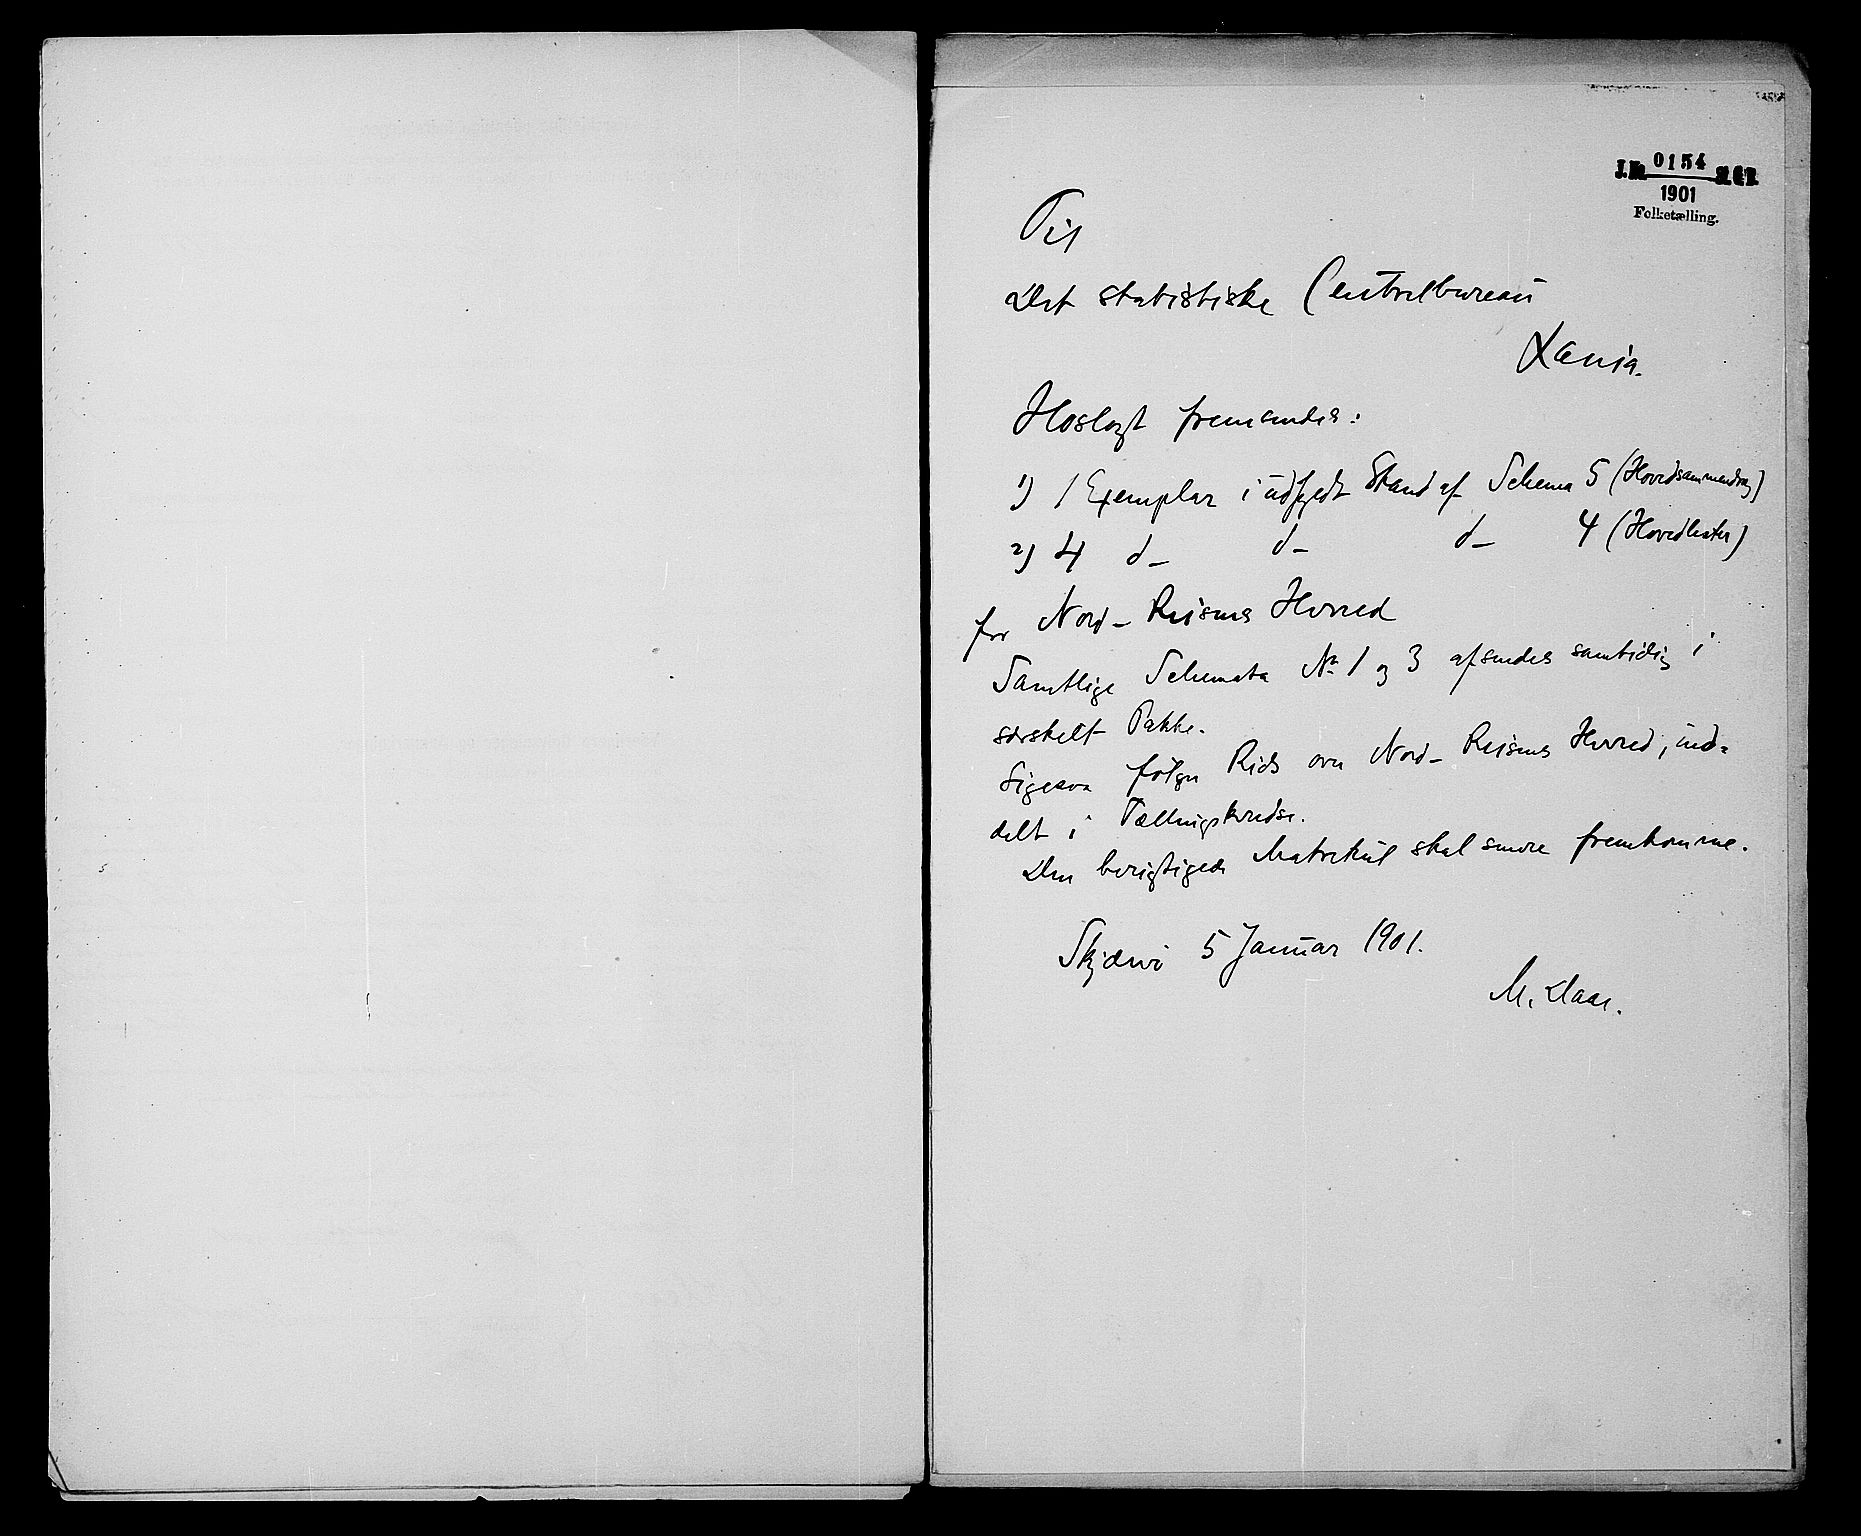 J.No. 0154 St.C.B.
1901
Folketælling.
Til
Det statistiske Centralbureau
Xania.
Hoslagt fremsendes:
1) 1 Exemplar i udfyldt Stand af Schema 5 (Hovedsammendrag)
2) 4 d- d- d- 4 (Hovedlister)
for Nord-Reisens Herred
Samtlige Schemata No 1 og 3 afsendes samtidig i
særskilt Pakke.
Ligesaa følger Rids over Nord-Reisens Herred, ind=
delt i Tællingskredse.
Den berigtigede Matrikul skal senere fremkomme.
Skjærvø 5 Januar 1901.
M. Daae.